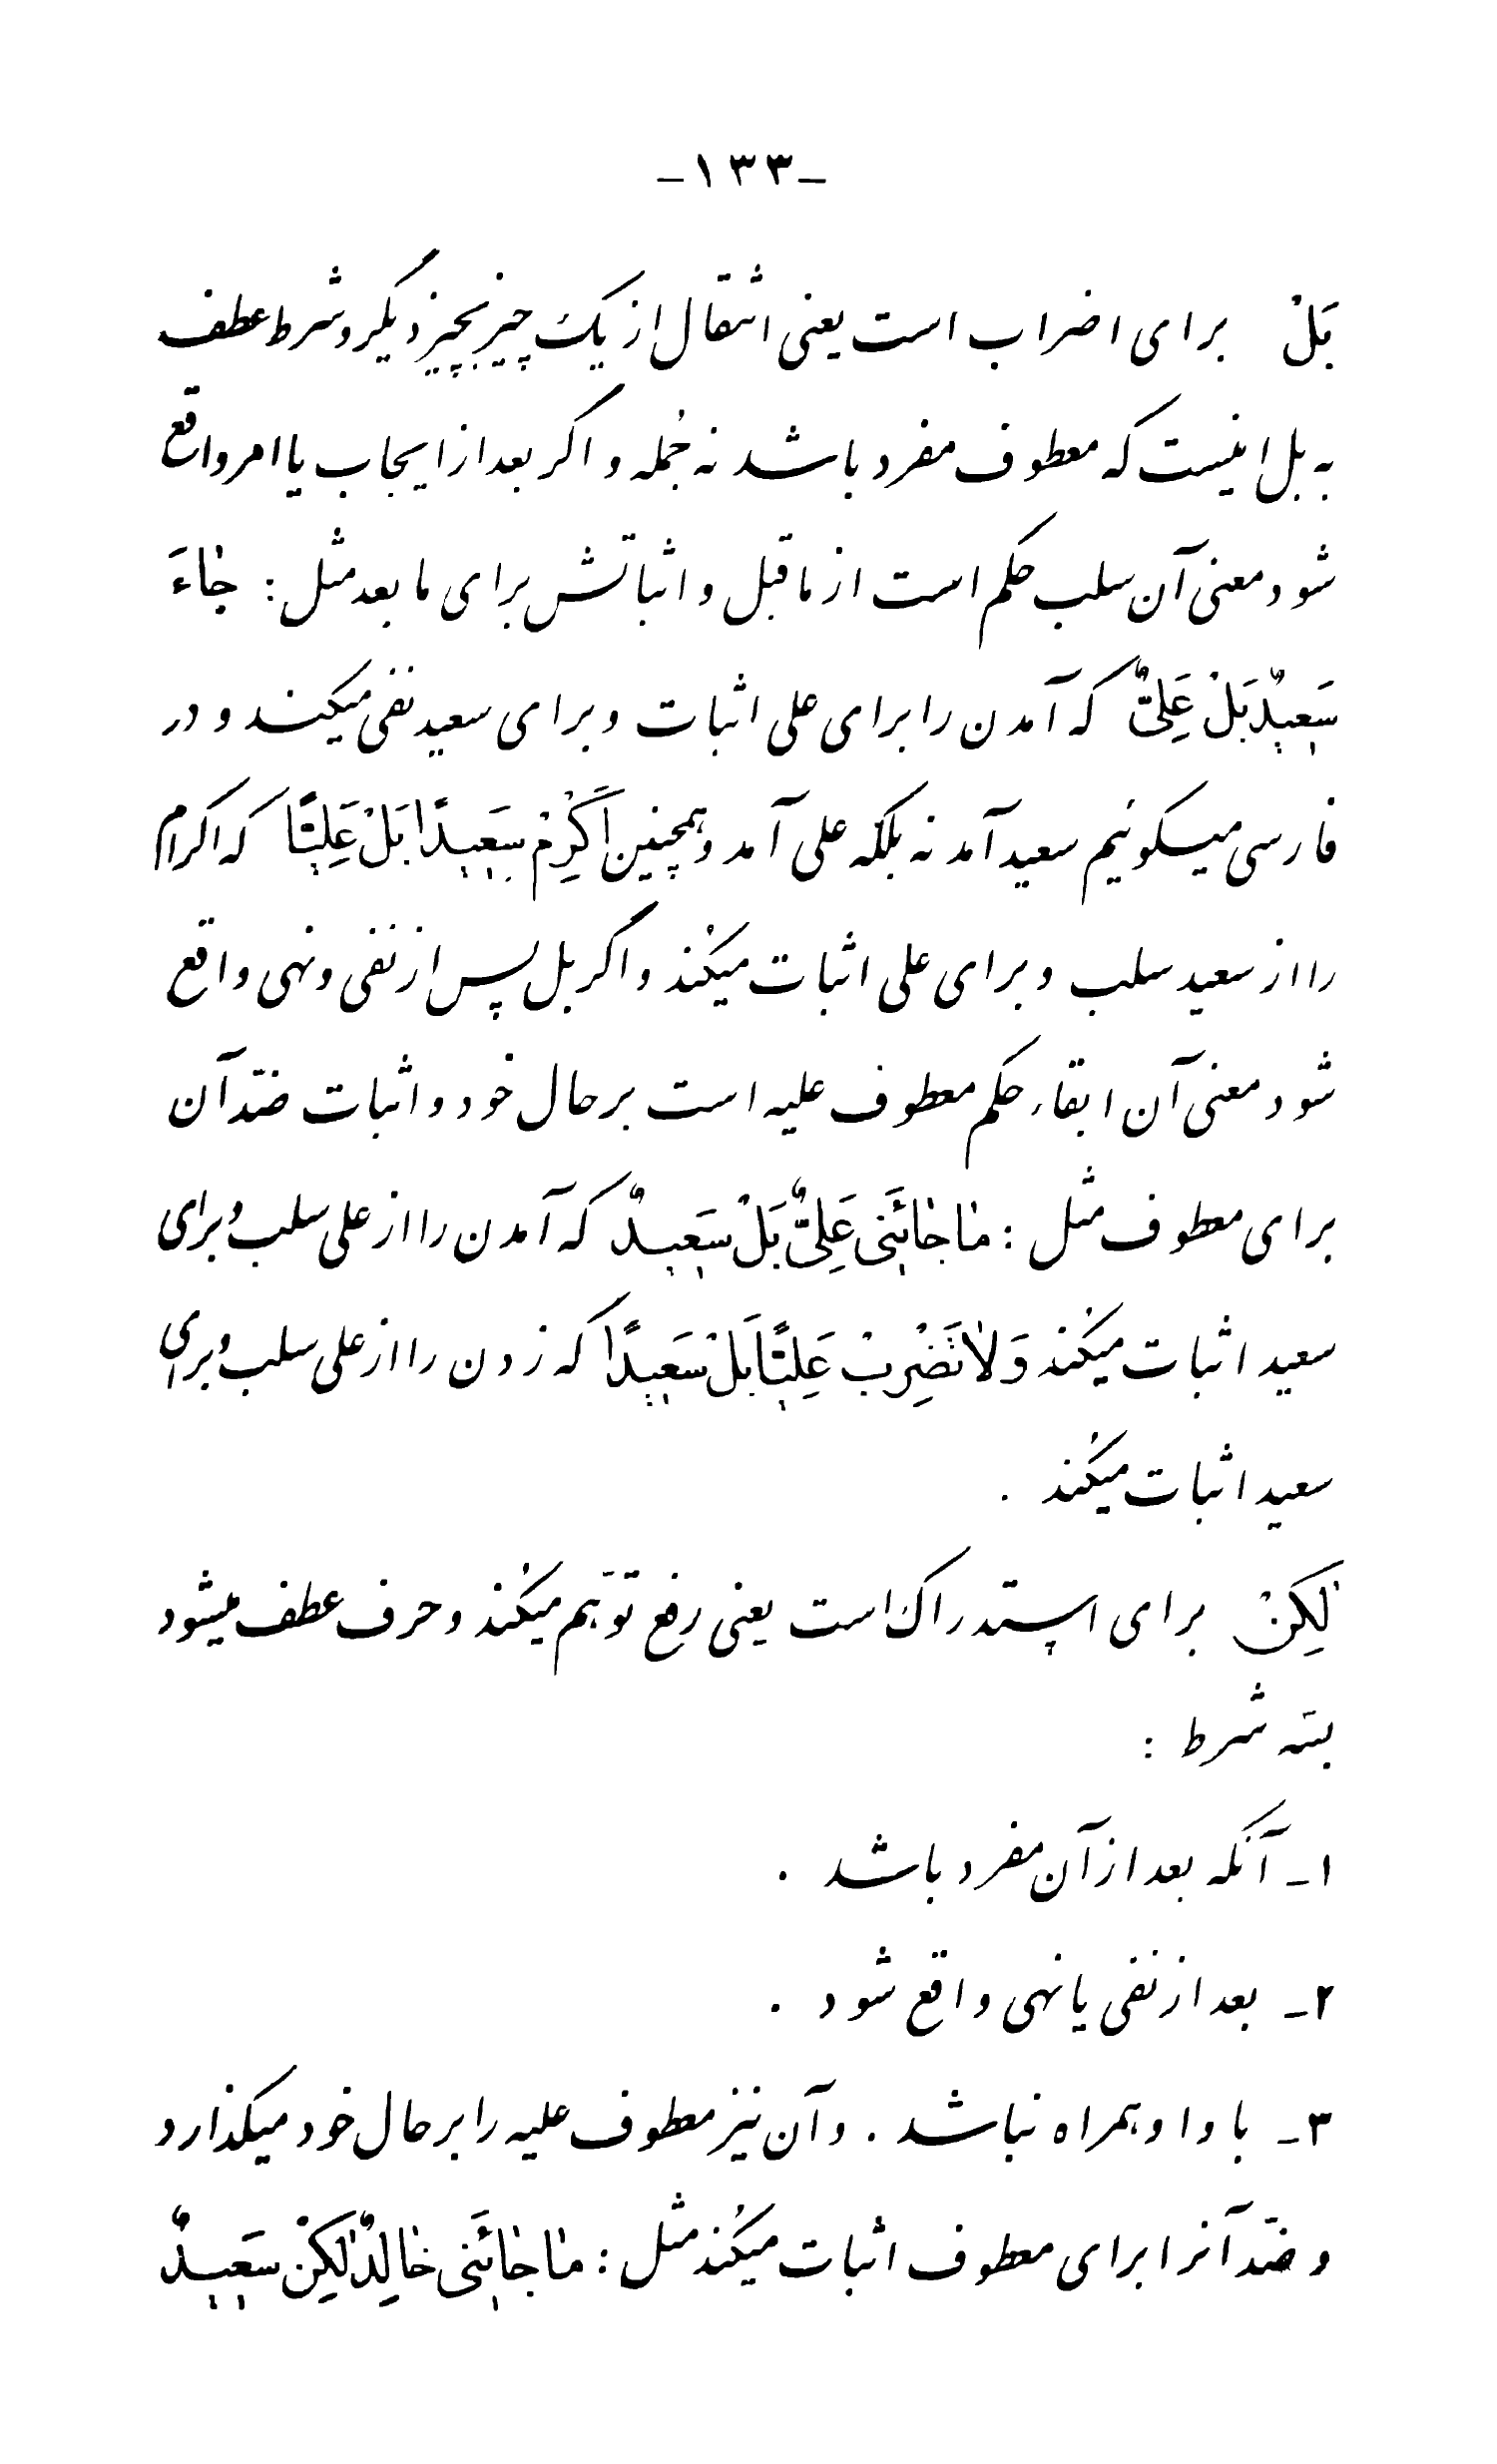 -۱۳۳-
بَلْ برای اضراب است یعنی انتقال از یک چیز بچیز دیگر و شرط عطف
به بل اینست که معطوف مفرد باشد نه جمله و اگر بعد از ایجاب یا امر واقع
شود معنی آن سلب حکم است از ماقبل و اثباتش برای ما بعد مثل : جاءَ
سَعیدٌ بَلْ عَلِیٌّ که آمدن را برای علی اثبات و برای سعید نفی میکند و در
فارسی میگوئیم سعید آمد نه بلکه علی آمد و همچنین اَکْرِمْ سَعیداً بَلْ عَلِیّاً که اکرام
را از سعید سلب و برای علی اثبات میکند و اگر بل پس از نفی و نهی واقع
شود معنی آن ابقاء حکم معطوف علیه است بر حال خود و اثبات ضدّ آن
برای معطوف مثل : ما جائَنی عَلِیٌّ بَلْ سَعیدٌ که آمدن را از علی سلب و برای
سعید اثبات میکند وَ لا تَضْرِبْ عَلِیّاً بَلْ سَعیداً که زدن را از علی سلب و برای
سعید اثبات میکند .
لٰکِنْ برای استدراک است یعنی رفع توهّم میکند و حرف عطف میشود
بسه شرط :
۱ـ آنکه بعد از آن مفرد باشد .
۲ـ بعد از نفی یا نهی واقع شود .
۳ـ با واو همراه نباشد . و آن نیز معطوف علیه را بر حال خود میگذارد
و ضدّ آنرا برای معطوف اثبات میکند مثل : ما جائَنی خالِدٌ لٰکِنْ سَعیدٌ